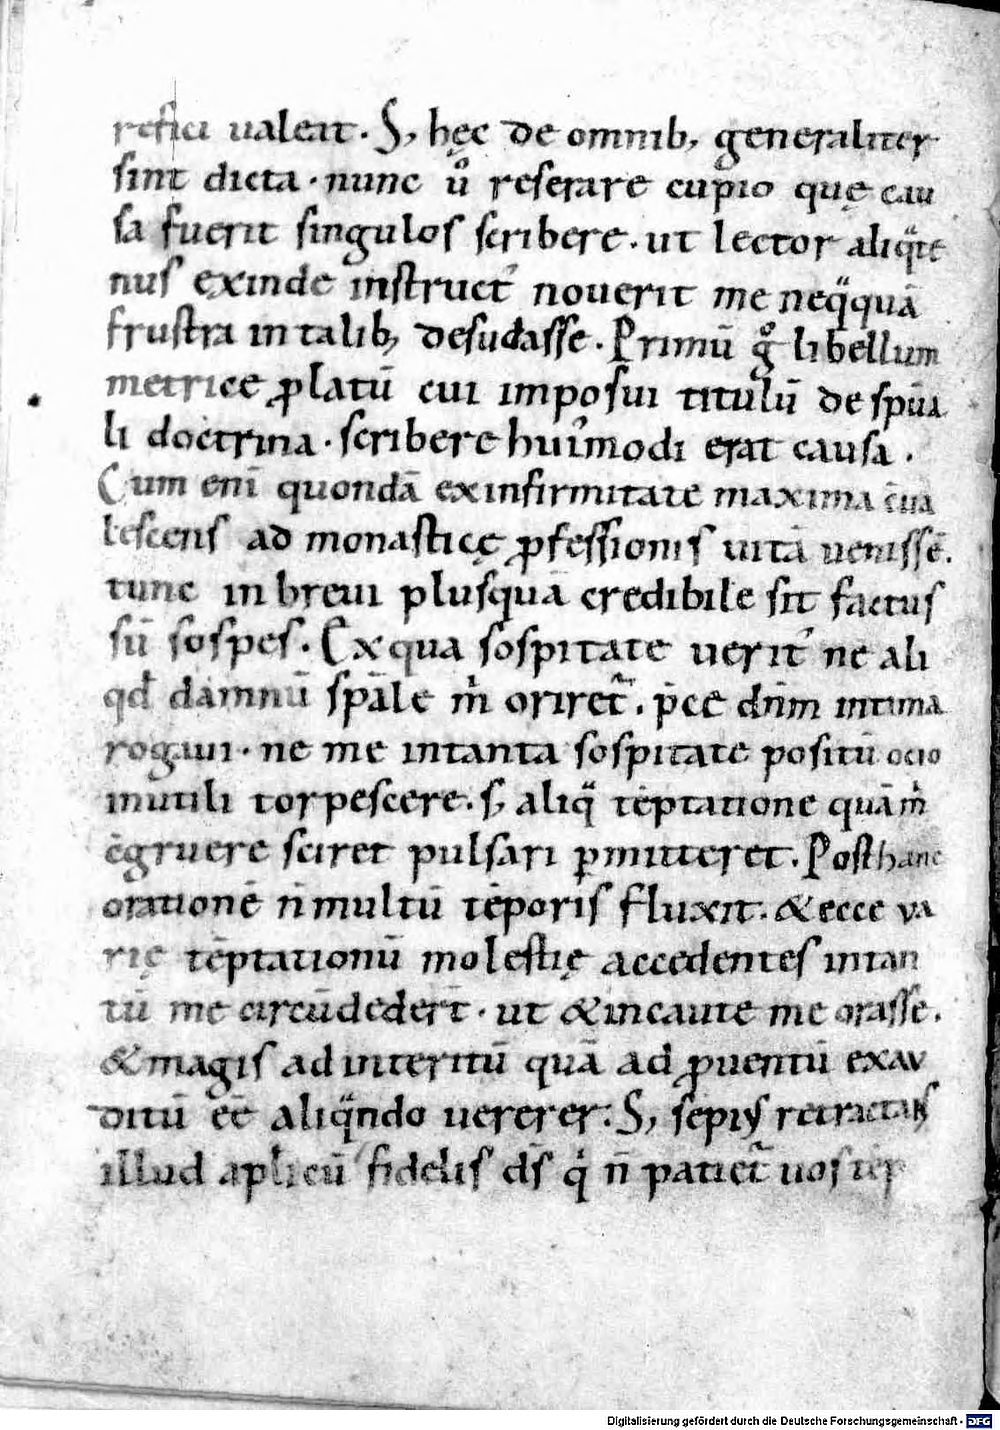 refici ualeat. S; hęc de omnib; generaliter
sint dicta. nunc ů reserare cupio quę cau
sa fuerit singulos scribere. ut lector aliqͣte
nus exinde instruct᾽ nouerit me neqͣquā
frustra in talib; desudasse. Primū gͦ libellum
metrice ꝓlatū cui imposui titulū de spūa
li doctrina. scribere hui᾽modi erat causa.
Cum enī quondā ex infirmitate maxima c̄ua
lescens ad monasticę ꝓfessionis uitā uenissē.
tunc in breui plusquā credibile sit factus
sū sospes. Ex qua sospitate uerit᾽ ne ali
qđ damnū sp̄ale m̍ oriret᷑. p̄ce dn̄m intima
rogaui. ne me in tanta sospitate positū ocio
inutili torpescere. s; aliqͣ tēptatione quā m̍
c̄gruere sciret pulsari ꝑmitteret. Post hanc
orationē n̄ multū tēporis fluxit. & ecce va
rię tēptationū molestię accedentes in tan
tū me circūdeder̄t. ut & incaute me orasse.
& magis ad interitū quā ad ꝓuentū exau
ditū eē aliqͣndo uererer. S; sepiꝰ retractans
illud aplicū fidelis ds̄ qͥ n̄ patiet᷑ uos tēp